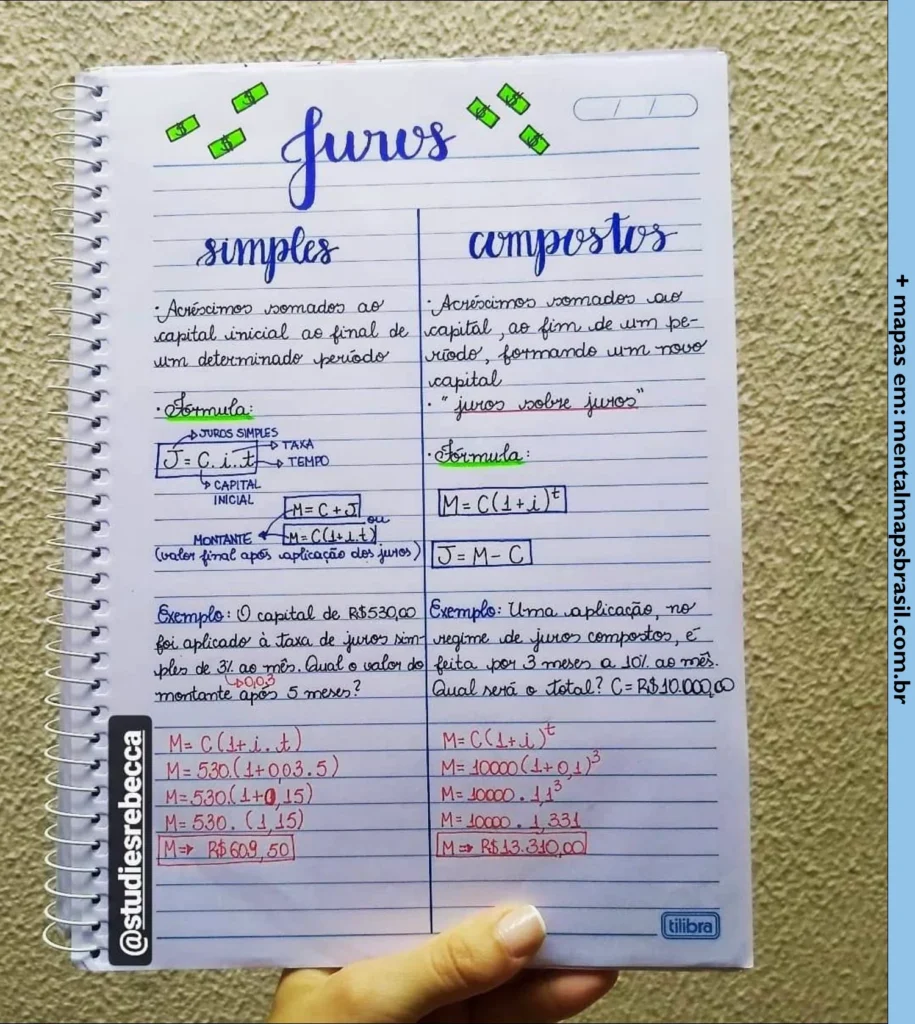 Juros
simples
· Acréscimos somados ao
capital inicial ao final de
um determinado período
· Fórmula:
JUROS SIMPLES
J = C. i. t
TAXA
TEMPO
CAPITAL
INICIAL
M = C + J
ou
M = C(1+i.t)
MONTANTE
(valor final após aplicação dos juros)
Exemplo: O capital de R$530,00
foi aplicado à taxa de juros sim-
ples de 3% ao mês. Qual o valor do
0,03
montante após 5 meses?
M = C(1+i.t)
M = 530.(1+0,03.5)
M = 530.(1+0,15)
M = 530. (1,15)
M⇒ R$609,50
compostos
· Acréscimos somados ao
capital, ao fim de um pe-
ríodo, formando um novo
capital
· "juros sobre juros"
· Fórmula:
M = C(1+i)^t
J = M - C
Exemplo: Uma aplicação, no
regime de juros compostos, é
feita por 3 meses a 10% ao mês.
Qual será o total? C = R$10.000,00
M = C(1+i)^t
M = 10000(1+0,1)³
M = 10000 . 1,1³
M = 10000 . 1,331
M⇒ R$13.310,00
tilibra
@studiesrebecca
+ mapas em: mentalmapsbrasil.com.br